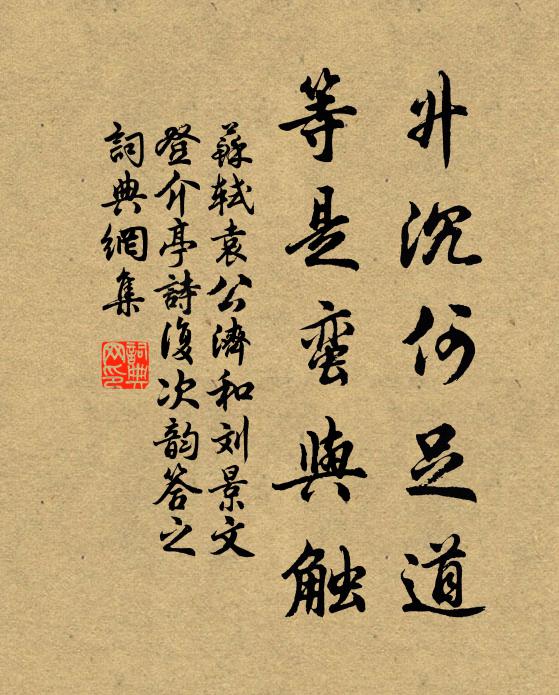 升沉何足道
等是蛮與触
蘇轼袁公濟和刘景文
登介亭詩復次韵答之
詞典網集
詞典网印